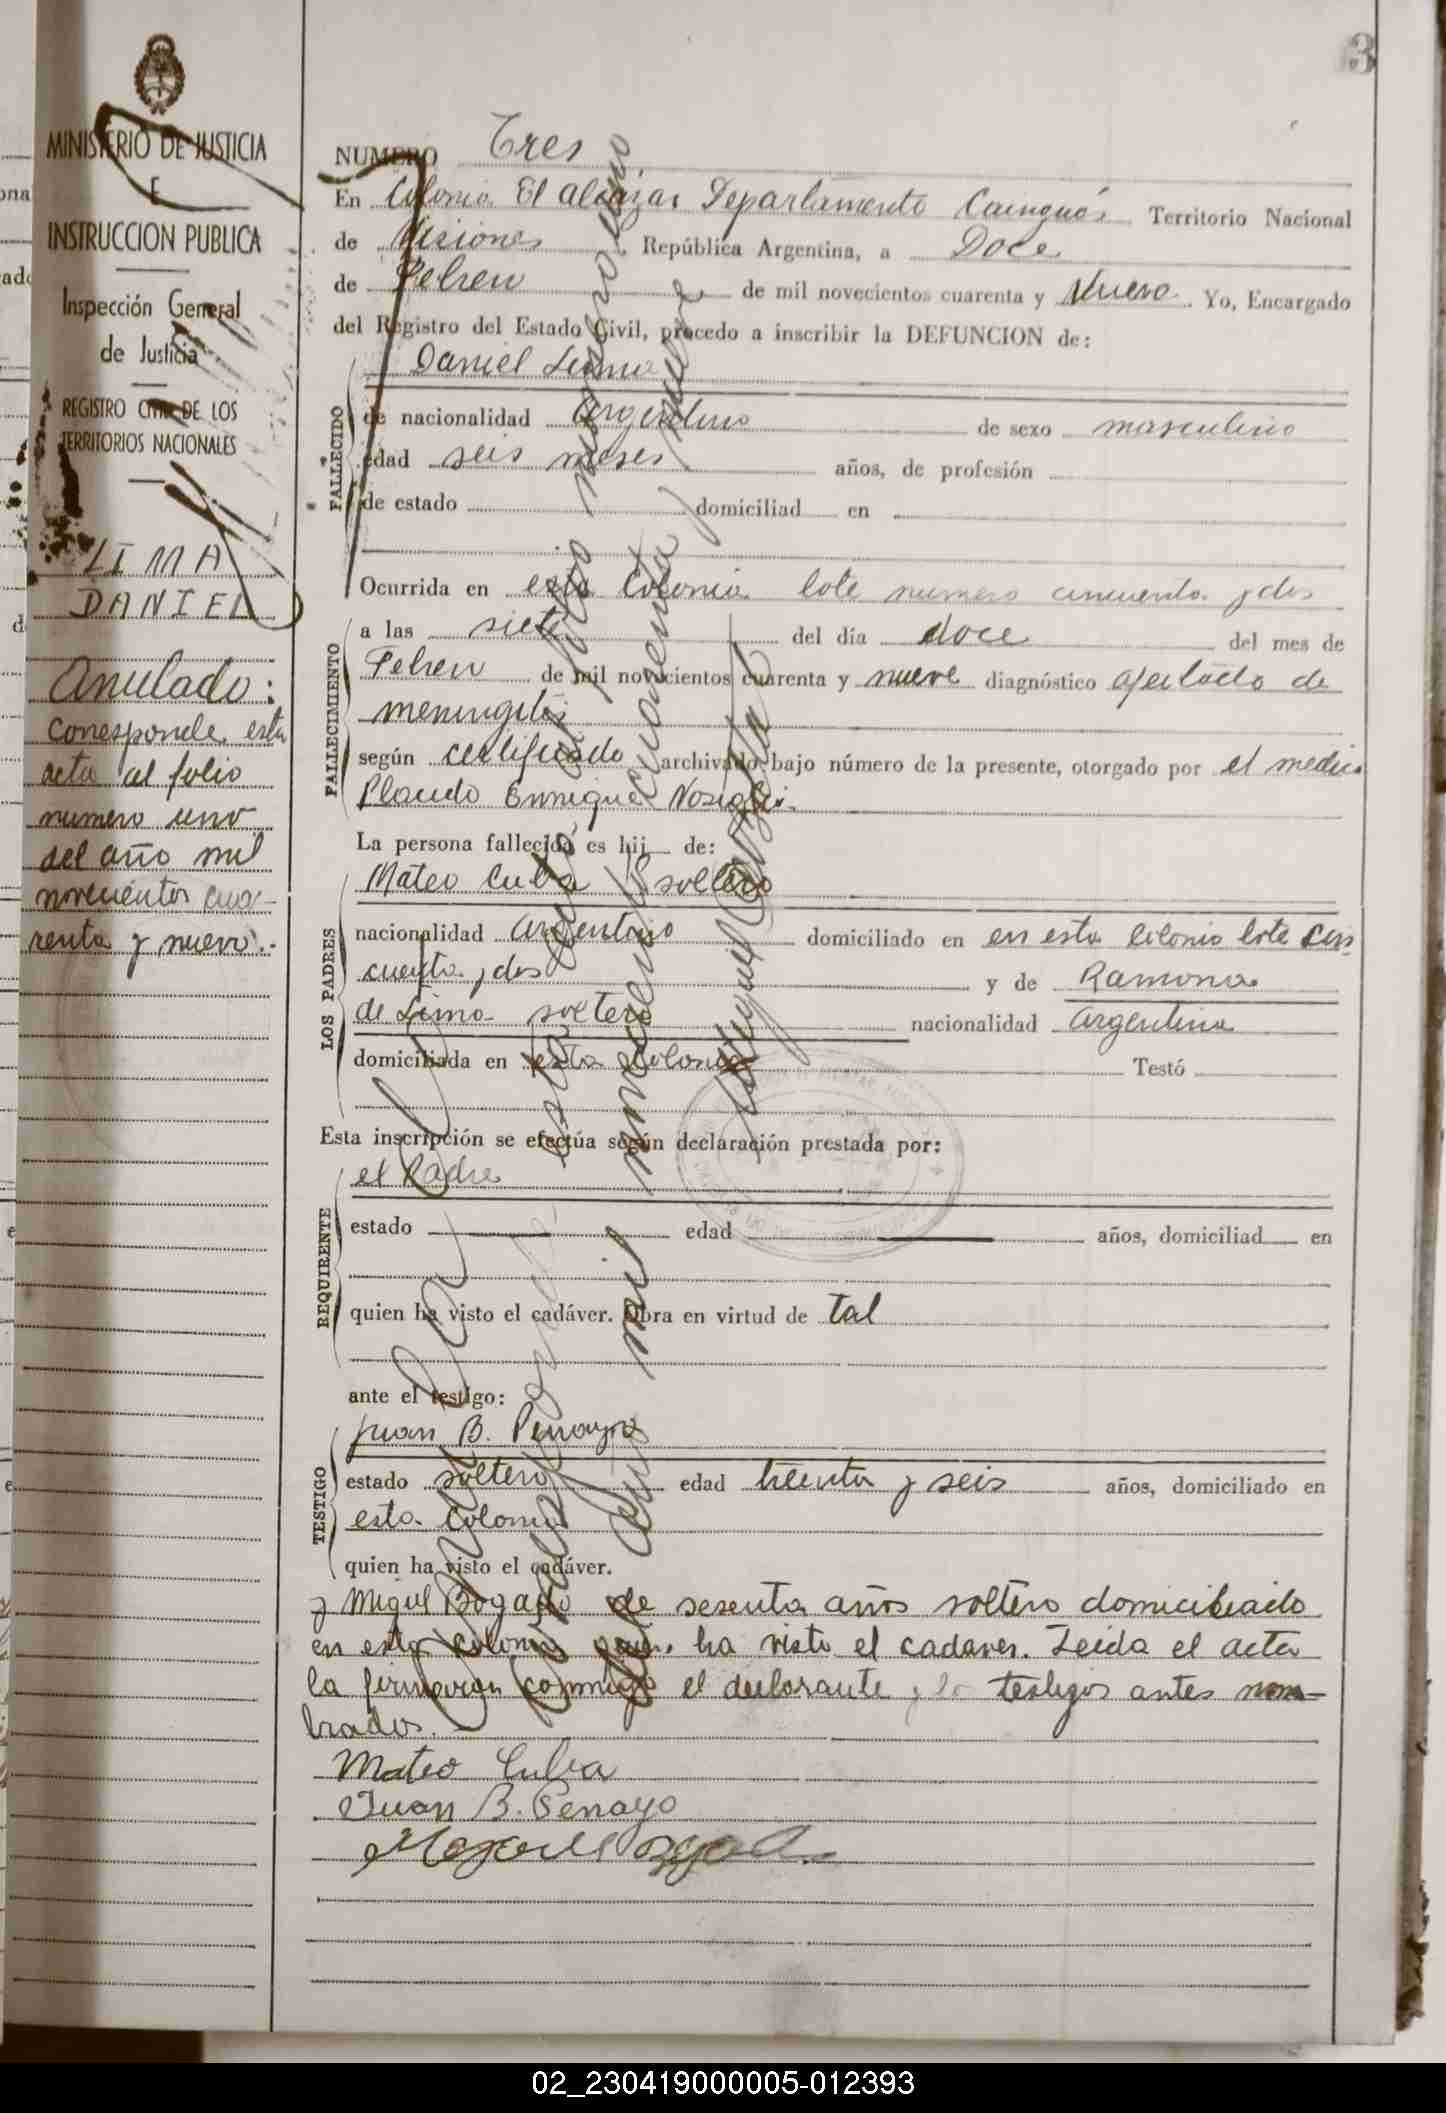 3
MINISTERIO DE JUSTICIA
E
INSTRUCCION PUBLICA
Inspección General
de Justicia
REGISTRO CIVIL DE LOS
TERRITORIOS NACIONALES
LIMA
DANIEL
Anulado:
Corresponde esta
acta al folio
numero uno
del año mil
novecientos cua-
renta y nueve.-
NUMERO Tres
En Colonia El Alcazar Departamento Cainguás Territorio Nacional
de Misiones República Argentina, a Doce
de Febrero de mil novecientos cuarenta y Nueve. Yo, Encargado
del Registro del Estado Civil, procedo a inscribir la DEFUNCION de:
Daniel Lima
FALLECIDO
de nacionalidad Argentino de sexo masculino
edad seis meses años, de profesión
de estado domiciliad en
Ocurrida en esta Colonia lote numero cincuenta y dos
FALLECIMIENTO
a las siete del día doce del mes de
Febrero de mil novecientos cuarenta y nueve diagnóstico afectado de
meningitis
según certificado archivado bajo número de la presente, otorgado por el medico
Placido Enrique
La persona fallecida es hij de:
LOS PADRES
Mateo Cuba soltero
nacionalidad Argentino domiciliado en en esta Colonia lote cin-
cuenta y dos y de Ramona
de Lima soltera nacionalidad Argentina
domiciliada en esta Colonia Testó
Esta inscripción se efectúa según declaración prestada por:
REQUIRENTE
el Padre
estado edad años, domiciliad en
quien ha visto el cadáver. Obra en virtud de tal
ante el testigo:
TESTIGO
Juan B. Penayo
estado soltero edad treinta y seis años, domiciliado en
esta Colonia
quien ha visto el cadáver.
y Miguel Bogado de sesenta años soltero domiciliado
en esta Colonia quien ha visto el cadaver. Leida el acta
la firmaron conmigo el declarante y los testigos antes nom-
brados.
Mateo Cuba
Juan B. Penayo
corresponde esta acta al folio numero uno
del año mil novecientos cuarenta y nueve
02_230419000005-012393